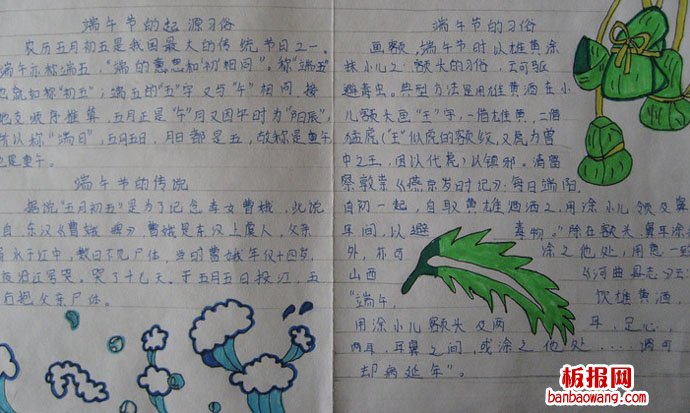 端午节的起源习俗
农历五月初五是我国最大的传统节日之一。
端午亦称端五，"端的意思和"初"相同"，称"端五"
也就如称"初五"；端五的"五"字又与"午"相同 按
地支顺序推算，五月正是"午"月又因午时为"阳辰"，
所以称"端日"，五月五日，月日都是五，故称是重午
也是重午。
端午节的传说
据说"五月初五"是为了纪念孝女曹娥，此说
自 东汉《曹娥 》曹娥是东汉上虞人，父亲
于江中，数日不见尸体，当时曹娥年仅十四岁，
沿江号哭。哭了十七天。于五月五日投江，五
后抱父亲尸体。
端午节的习俗
画额，端午节时以雄黄涂
抹小儿之额头的习俗，云可驱
避毒虫。典型方法是用雄黄酒在小
儿额头画"王"字，一借雄黄，二借
猛虎（"王"似虎的额纹，又虎为兽
中之王，因以代虎）以镇邪。清富
察敦崇《燕京岁时记》：每日端阳，
自初一起，自取黄雄酒洒之，用涂小儿领及鼻
耳间，以避 毒物。"除在额头、鼻耳涂
外，亦可 涂之他处，用意一致
山西 《河曲县志》云：
"端午， 饮雄黄酒，
用涂小儿额头及两 耳，足心，
两耳、耳鼻之间，或涂之他处……谓可
却病延年"。
板报网
banbaowang.com